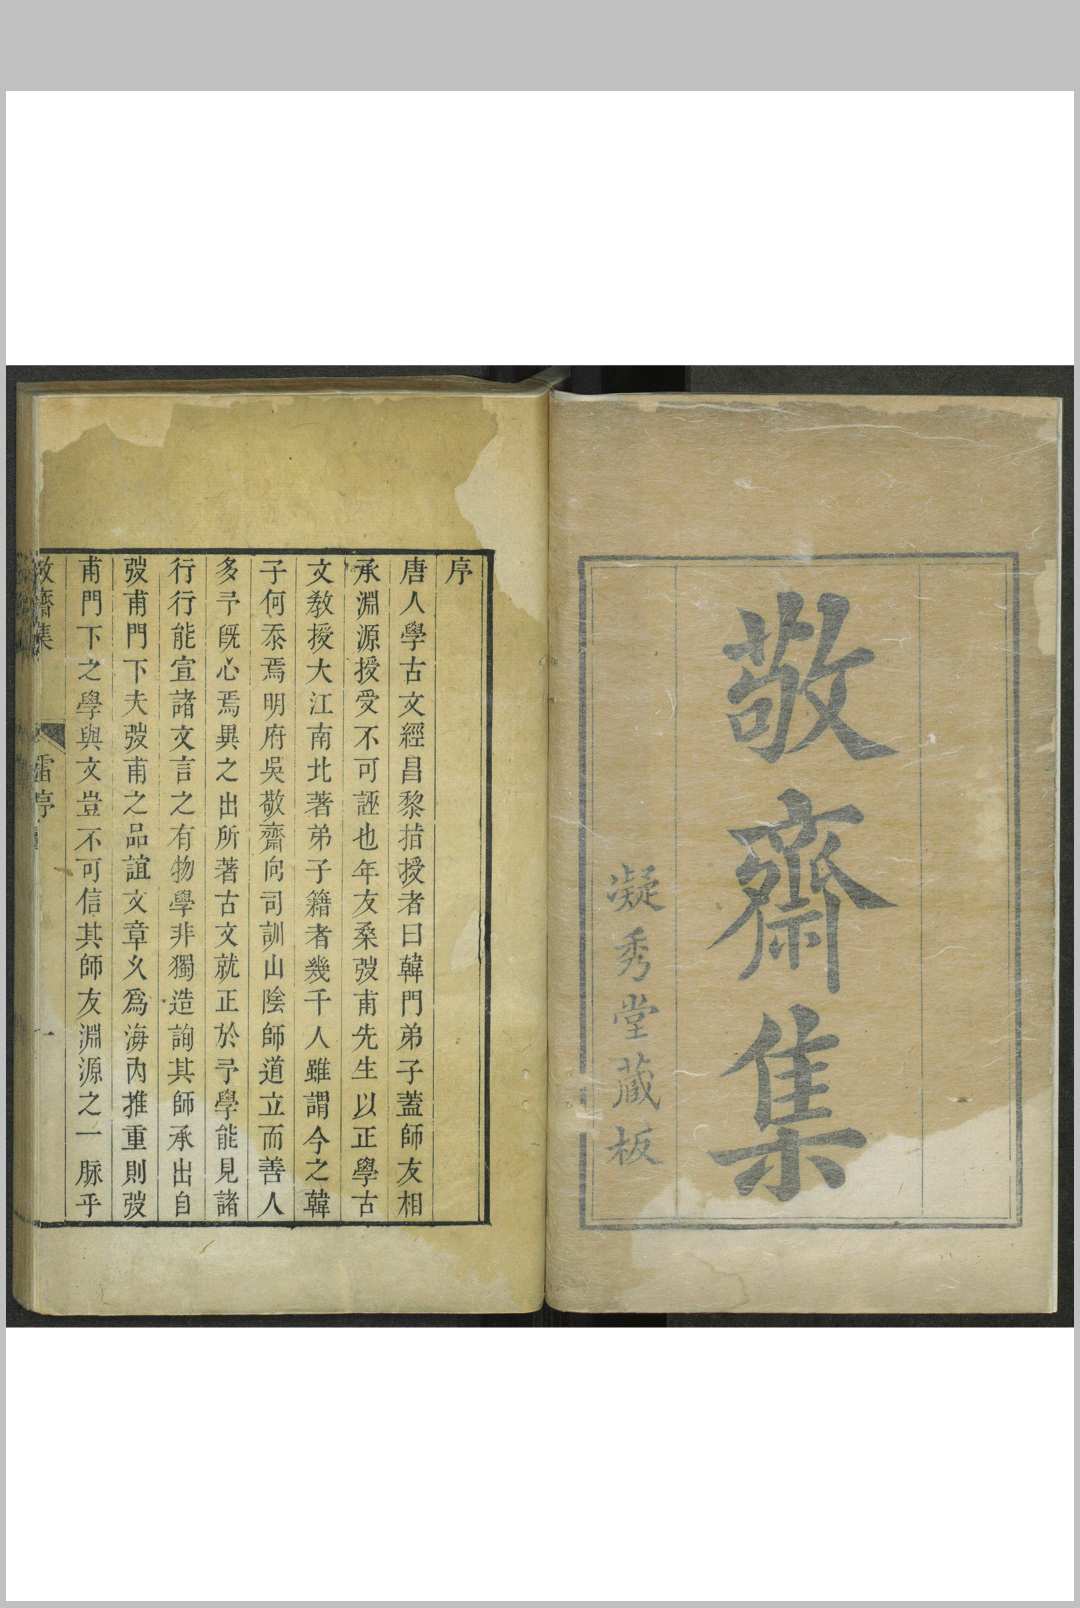 敬齋集
凝秀堂藏板
序
唐人學古文經昌黎指授者曰韓門弟子蓋師友相
承淵源授受不可誣也年友桑弢甫先生以正學古
文教授大江南北著弟子籍者幾千人雖謂今之韓
子何忝焉明府吳敬齋向司訓山陰師道立而善人
多予旣心焉異之出所著古文就正於予學能見諸
行行能宣諸文言之有物學非獨造詢其師承出自
弢甫門下夫弢甫之品誼文章久爲海內推重則弢
甫門下之學與文豈不可信其師友淵源之一脉乎
敬齋集
雷序
一